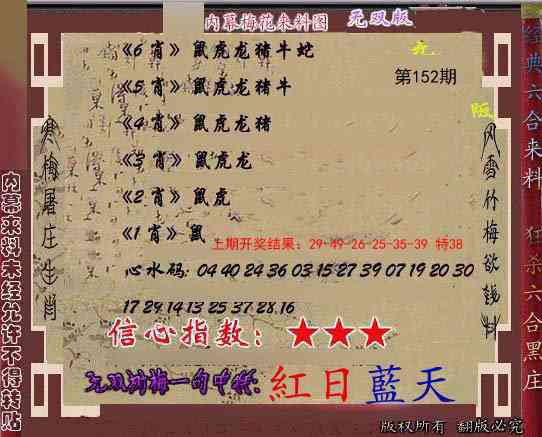 内幕梅花来料图 无双版
《6 肖》 鼠虎龙猪牛蛇
无
《5 肖》 鼠虎龙猪牛
第152期
版
《4 肖》 鼠虎龙猪
《3 肖》 鼠虎龙
《2 肖》 鼠虎
《1 肖》 鼠
上期开奖结果：29-49-26-25-35-39 特38
心水码: 04 40 24 36 03 15 27 39 07 19 20 30
17 29 14 13 25 37 28.16
信心指数：★★★
无双 梅一句中特: 紅日藍天
版权所有 翻版必究
寒梅屠庄生肖
风雪竹梅欲钱料
内幕来料未经允许不得转贴
经典六合来料 狂杀六合黑庄